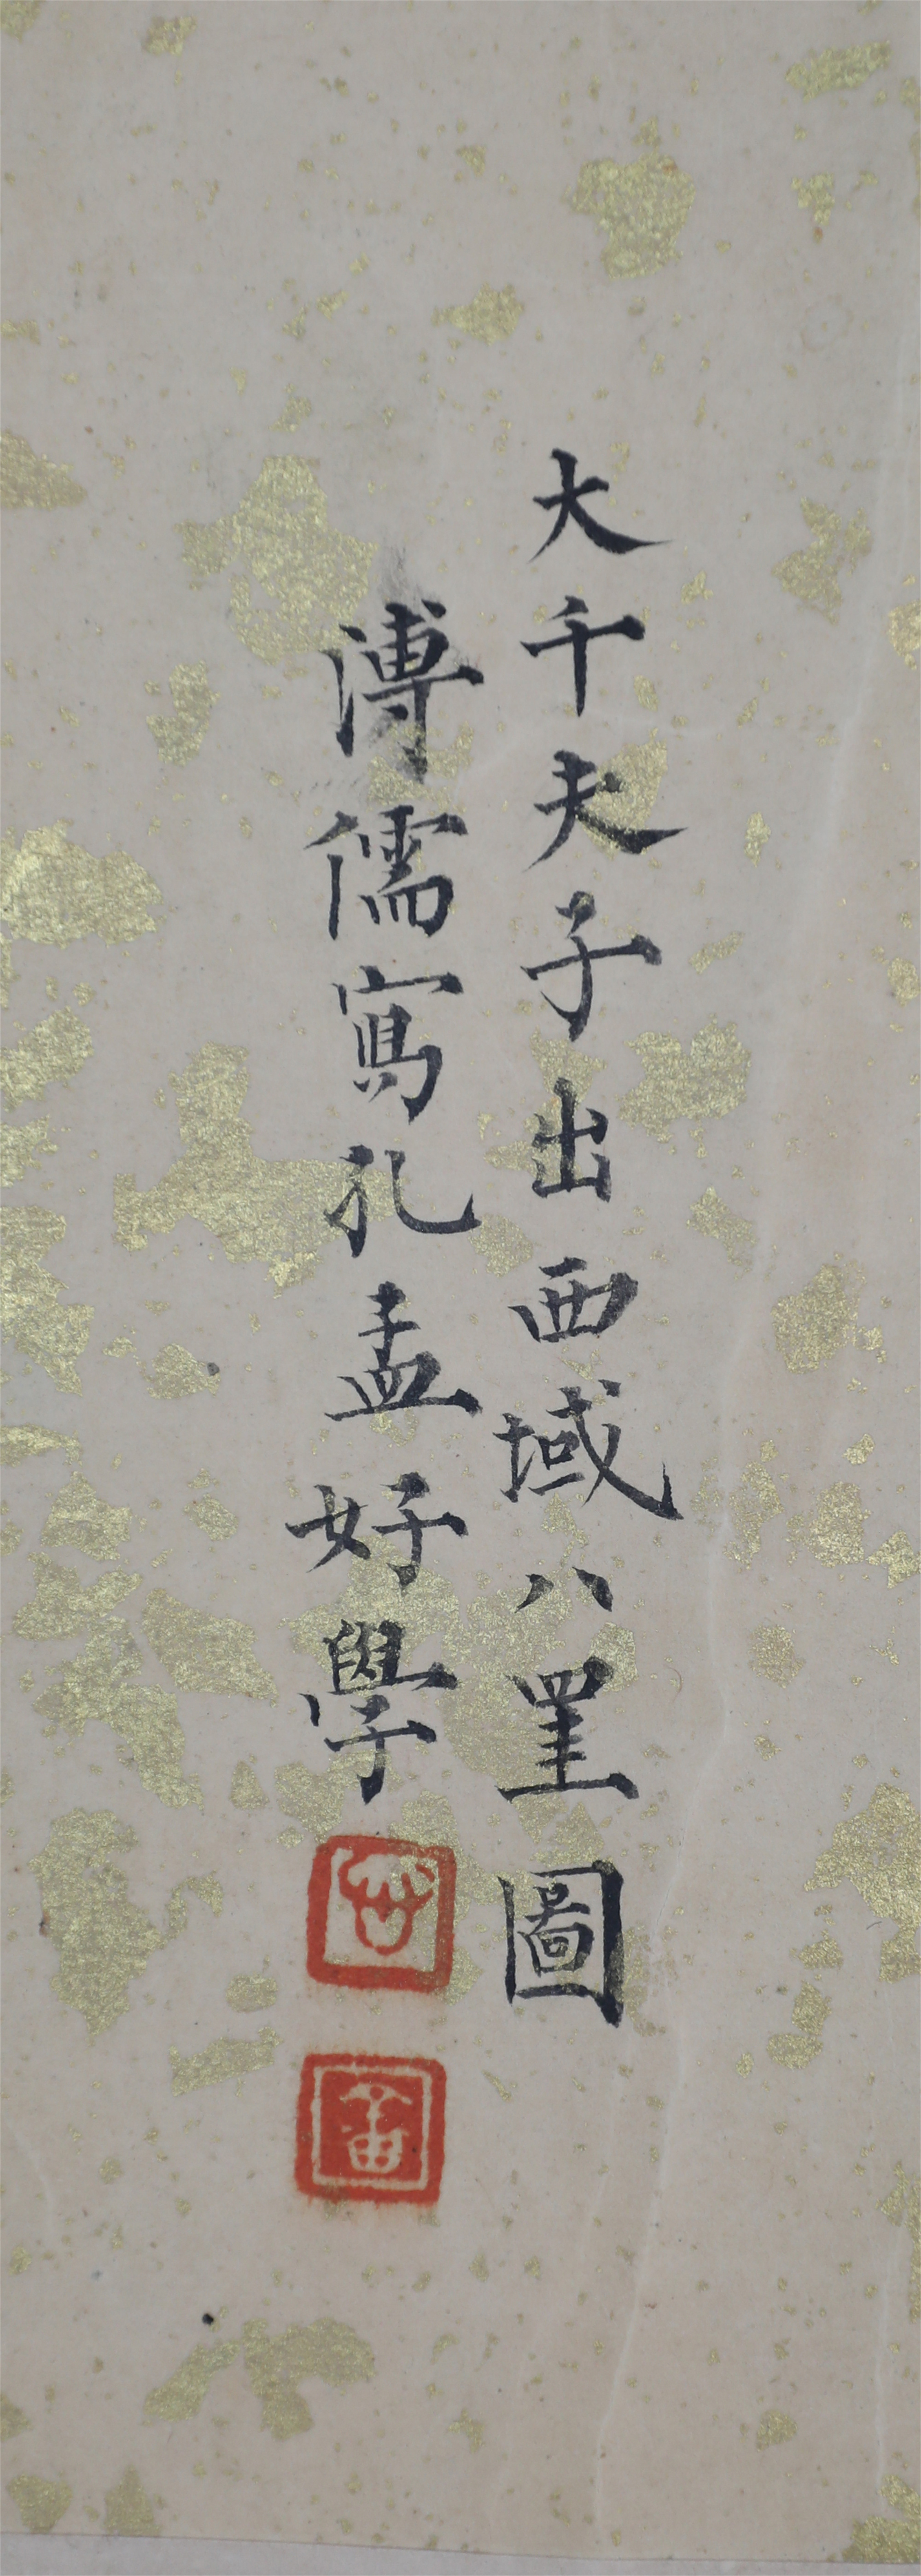 大千夫子出西域八罣圖
溥儒寫孔孟好學